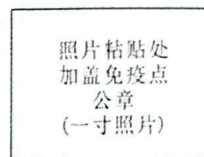 照片粘贴处
加盖免疫点
公章
(一寸照片)